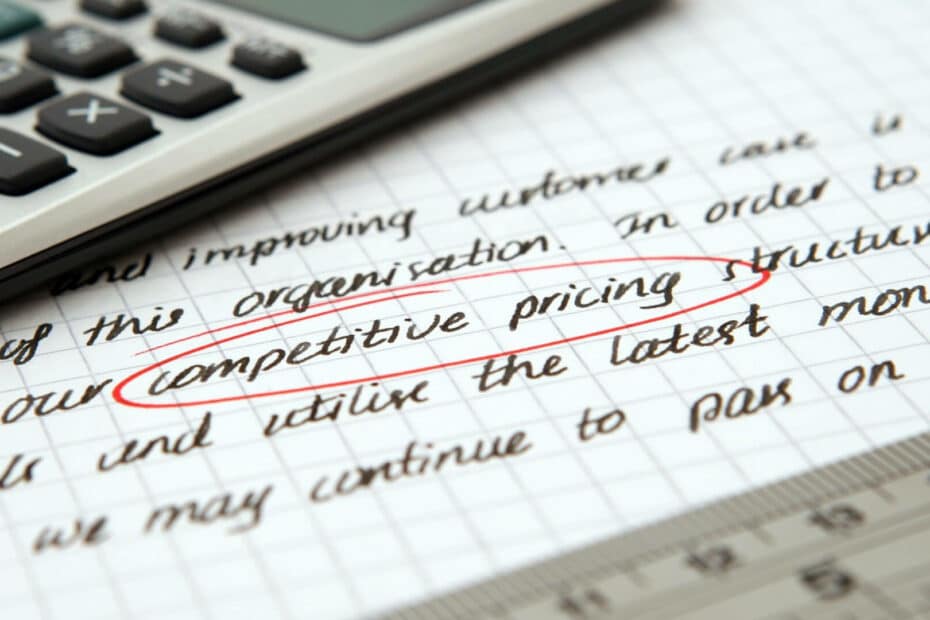 and improving customer care is
of this organisation. In order to
our competitive pricing structur
ls and utilise the latest mon
we may continue to pass on
11 12 13
5
% ÷ ×